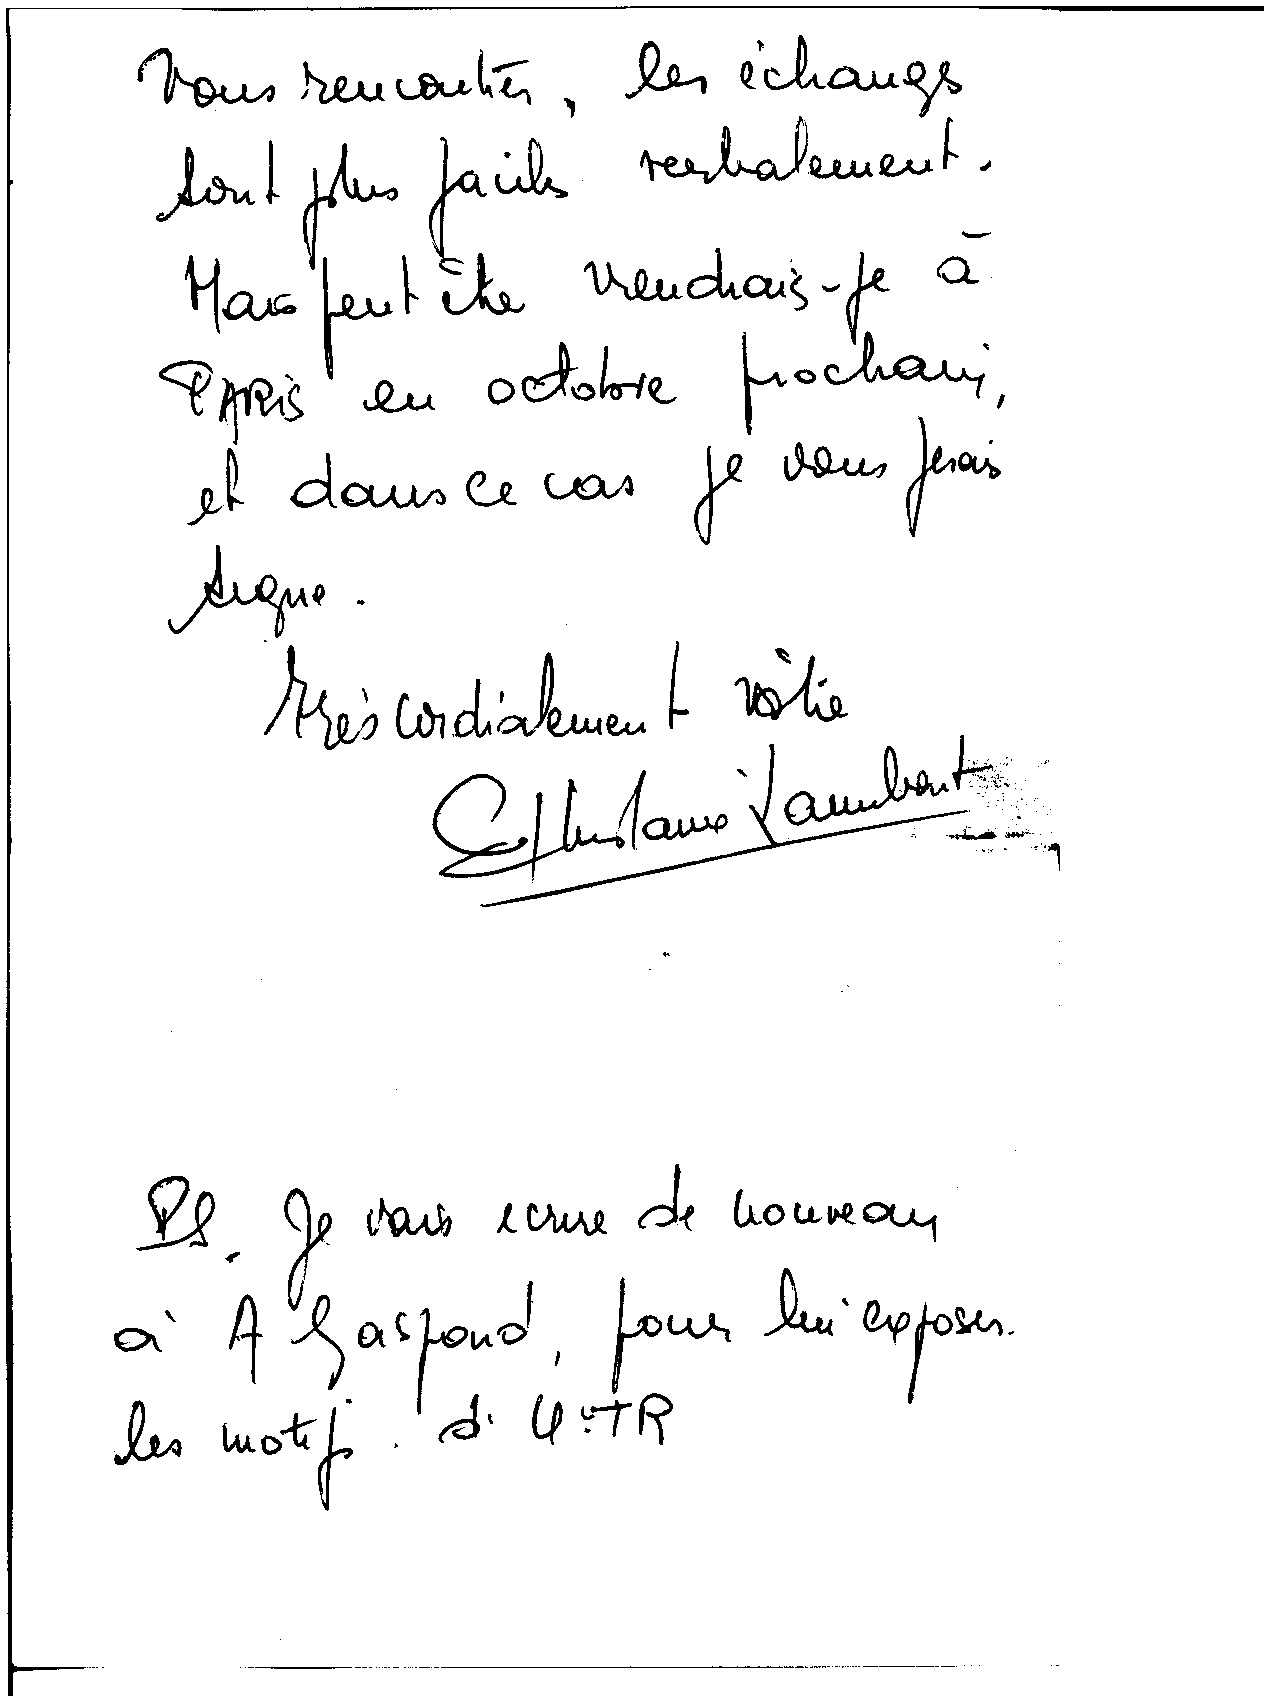 vous rencontrer, les échanges
sont plus faciles verbalement.
Mais peut être viendrais-je à
PARIS en octobre prochain,
et dans ce cas je vous ferais
signe.
très cordialement vôtre
Lambert
PS. Je vais écrire de nouveau
à A Gaspard, pour lui exposer
les motifs